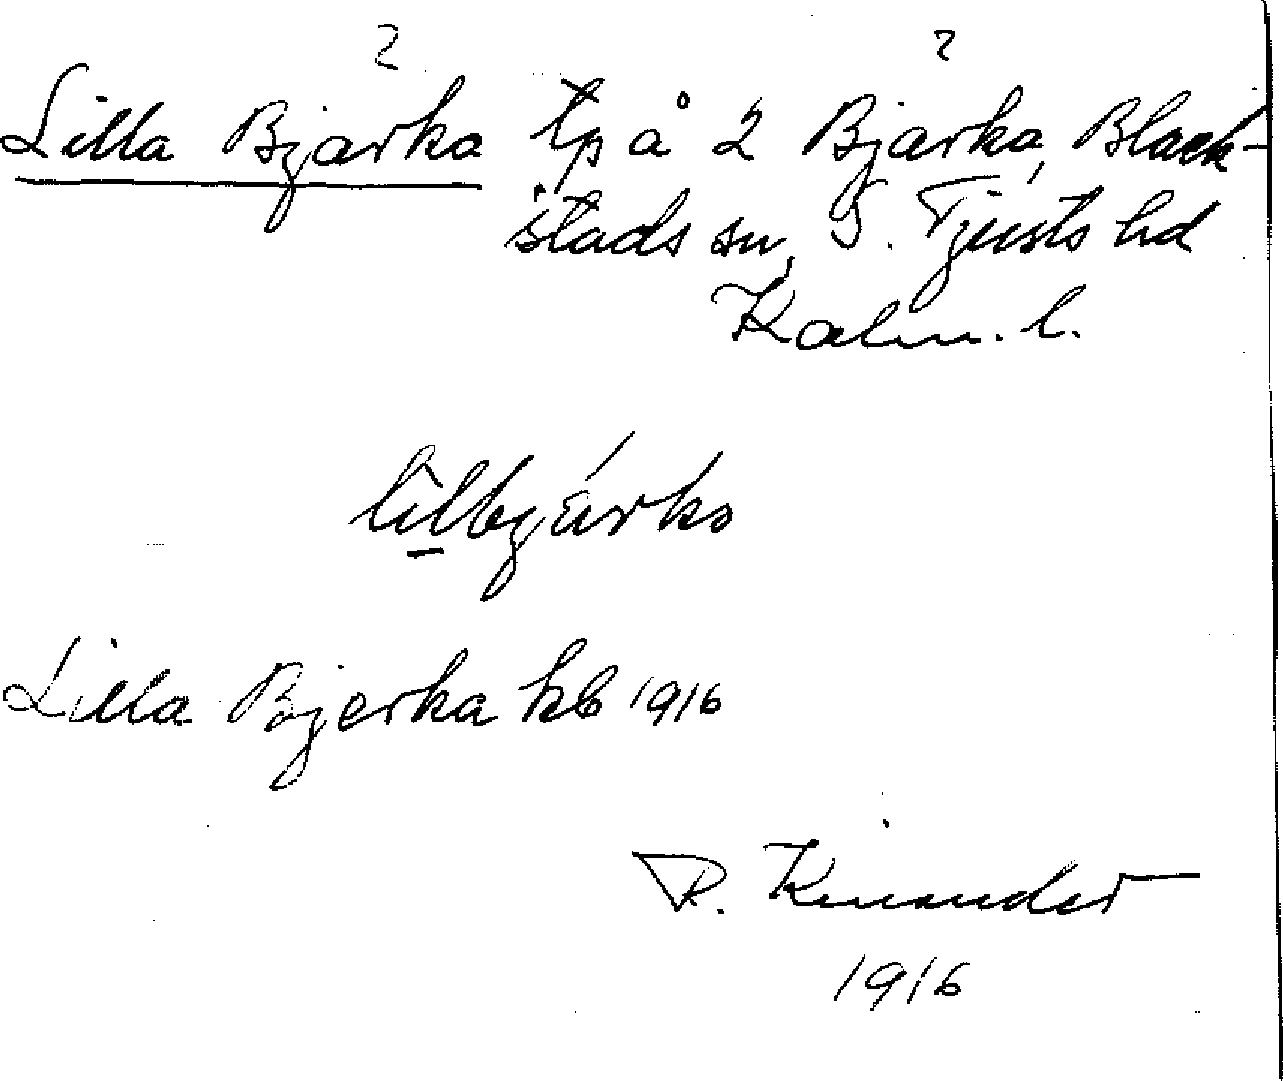 ? ?
Lilla Bjarka tp å 2 Bjarka, Black-
stads sn, S. Tjusts hd
Kalm. l.
lillbjárka
Lilla Bjerka kb 1916
R. Kinander
1916